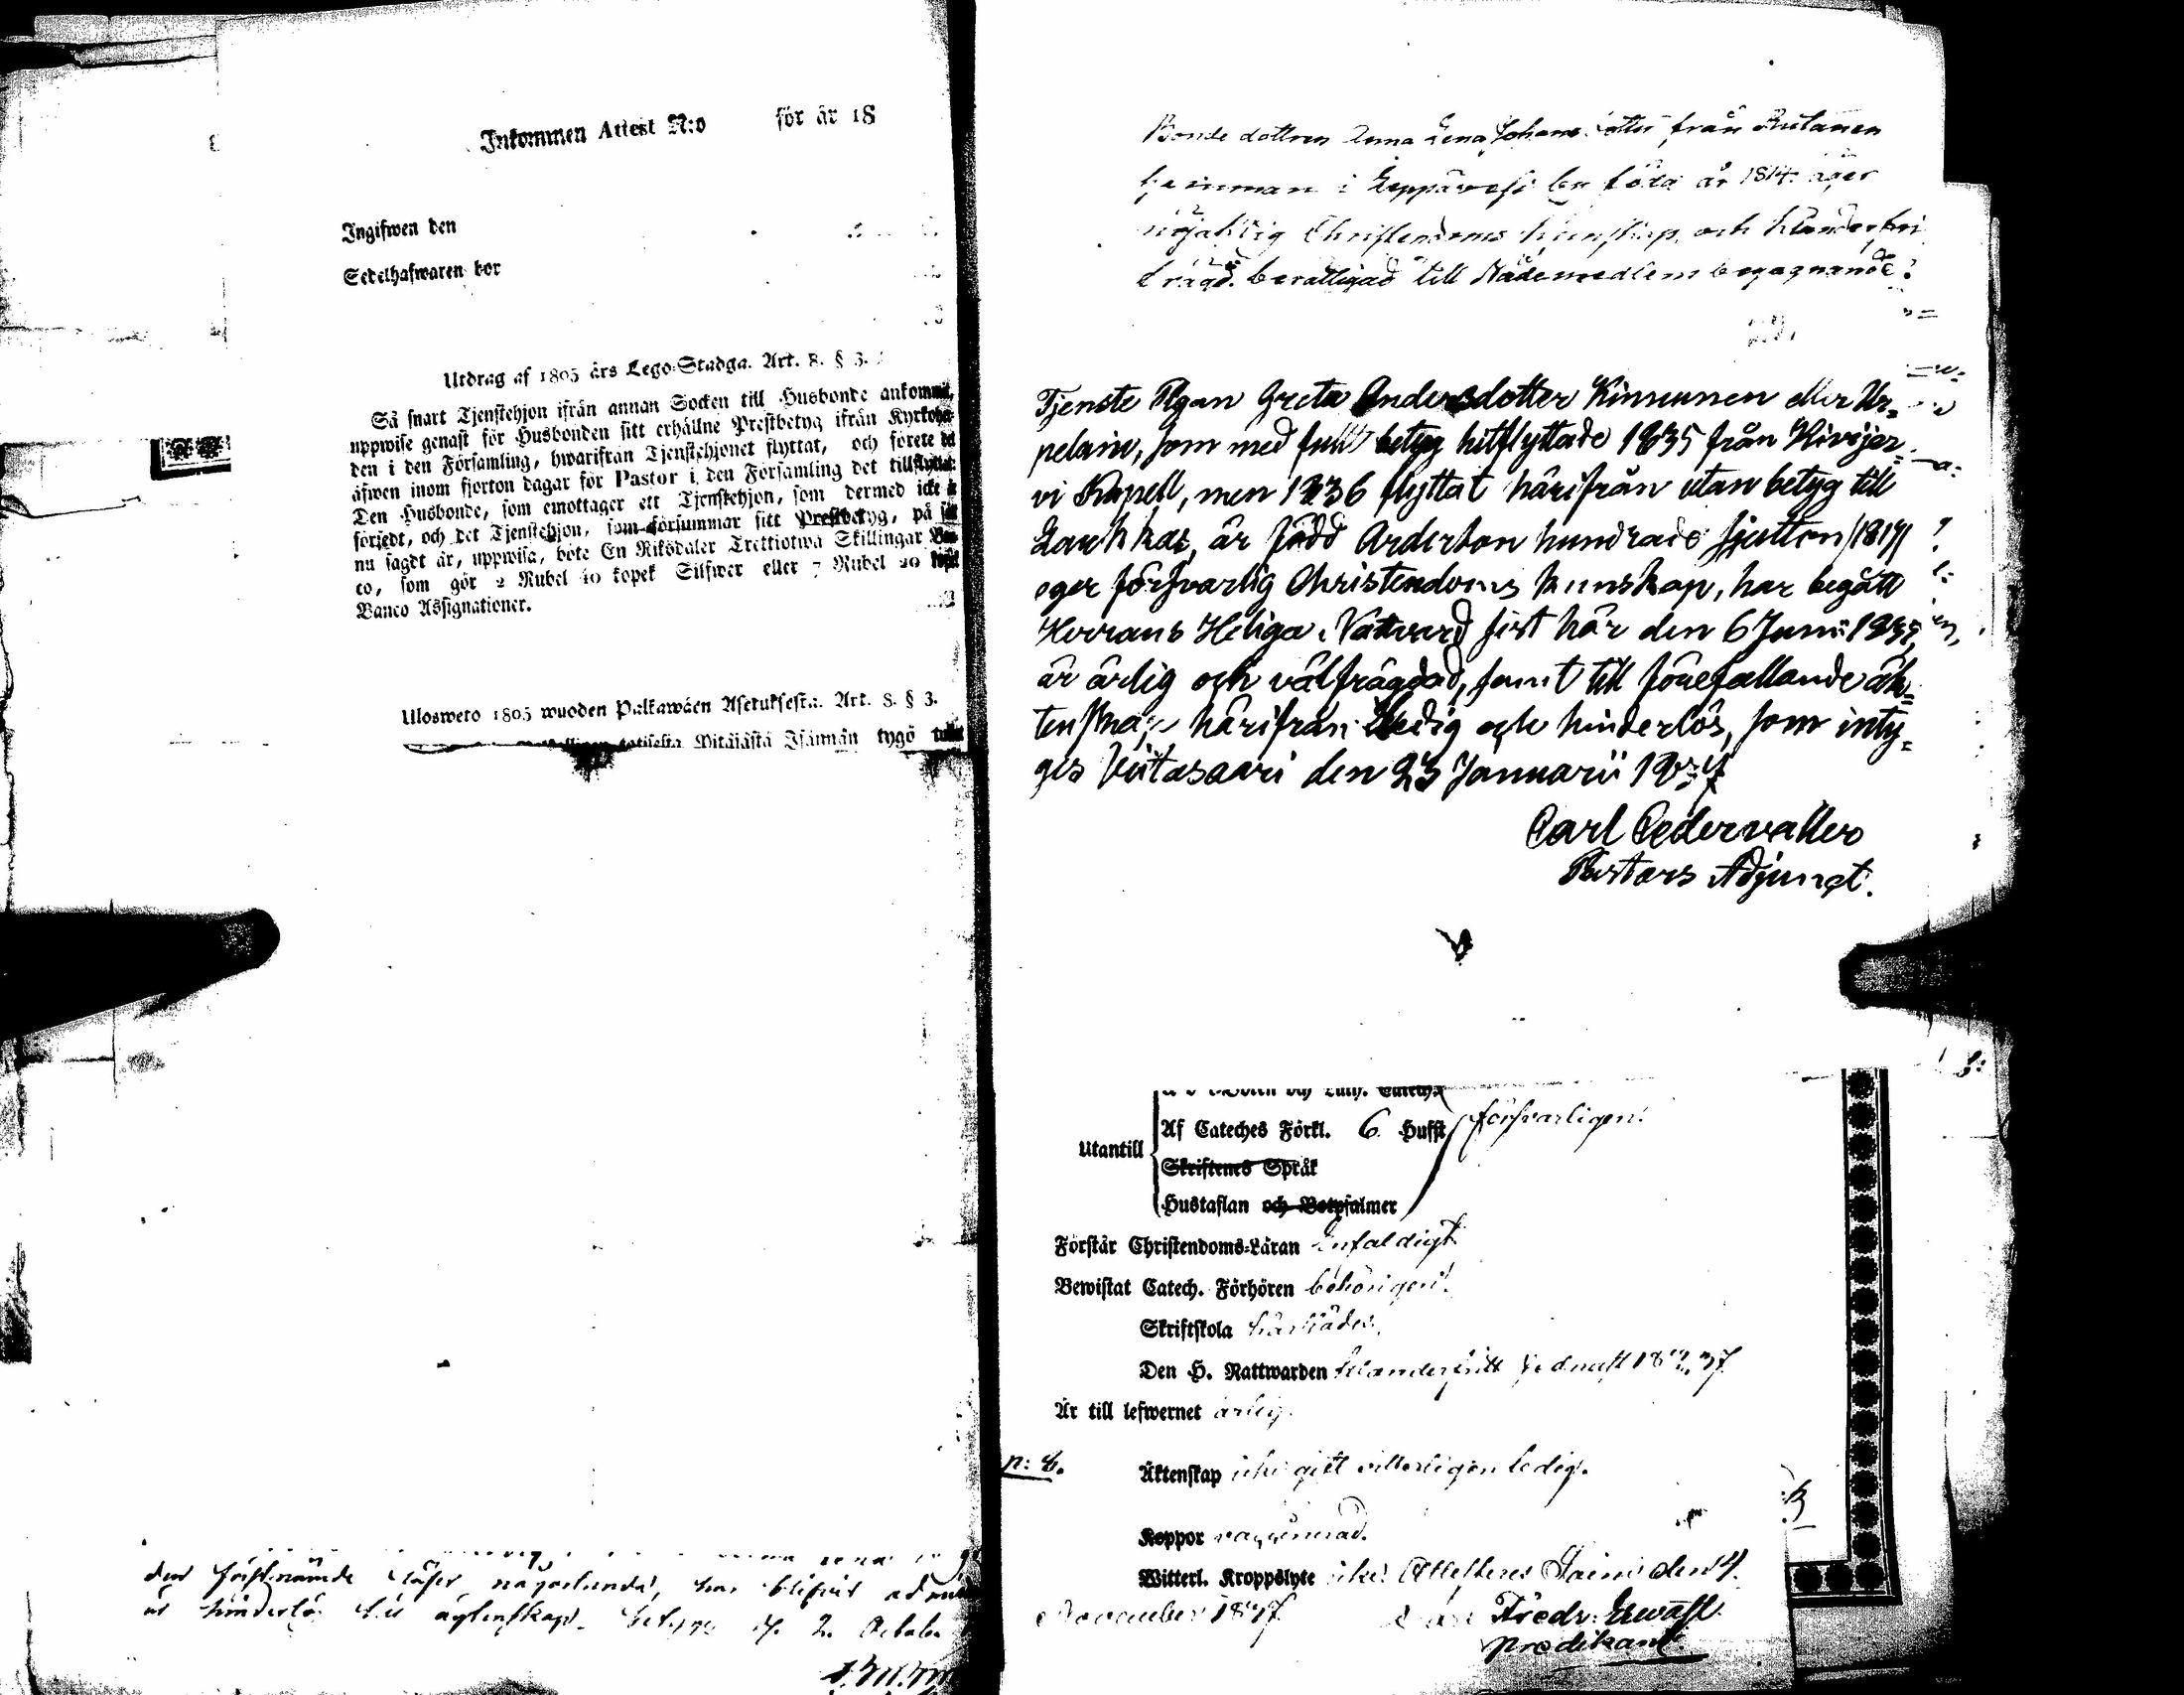 Inkommen Attest N:o för år 18
Ingifwen den
Sedelhafwaren bor
Utdrag af 1805 års Lego-Stadga. Art. 8. § 3.
Så snart Tjenstehjon ifrån annan Socken till Husbonde ankommit,
uppwise genast för Husbonden sitt erhållne Prestbetyg ifrån Kyrkohe-
den i den Församling, hwarifrån Tjenstehjonet flyttat, och förete det
äfwen inom fjorton dagar för Pastor i den Församling det tillflyttat.
Den Husbonde, som emottager ett Tjenstehjon, som dermed icke är
försedt, och det Tjenstehjon, som försummar sitt Prestbetyg, på sätt
nu sagdt är, uppwisa, böte En Riksdaler Trettiotwå Skillingar Ban-
co, som gör 2 Rubel 40 kopek Silfwer eller 7 Rubel 20 kopek
Banco Assignationer.
Ulosweto 1805 wuoden Palkawäen Asetuksesta. Art. 8. § 3.
Pitäjästä Isännän tygö
den förstnämde läser någorlunda, har blifvit
är hinderlös till ägtenskap. betygar d. 2. October
Bonde dottren Anna Lena Johans dotter från
hemman i Leppävesi by född år 1814. äger
nöjaktig Christendoms kunskap, och klanderfri
frägd. berättigad till Nådemedlens begagnande.
Tjenste Pigan Greta Andersdotter Kinnunen eller Ur-
pelain, som med fullt betyg hitflyttade 1835 från Kivijär-
vi Kapell, men 1836 flyttat härifrån utan betyg till
Laukkas, är född Aderton hundrade sjutton /1817/
eger försvarlig Christendoms kunskap, har begått
Herrans Heliga Nattvard sist här den 6 Junii
är ärlig och välfrägdad, samt till förefallande äk-
tenskap härifrån ledig och hinderlös, som inty-
gas Viitasaari den 23 Januarii 1837
Carl Cedervaller
Pastors Adjunct.
Utantill
Af Cateches Förkl. 6 Hufst försvarligen.
Skriftenes Språk
Hustaflan och Botpsalmer
Förstår Christendoms-Läran Enfaldigt
Bewistat Catech. Förhören behörigen.
Skriftskola härstädes.
Den H. Nattwarden klanderfritt sednast
Är till lefwernet ärlig.
n: 8.
Äktenskap icke gift vitterligen ledig.
Koppor vaccinerad.
Witterl. Kroppslyte icke. Attesteras Saini den 4.
November 1837.
Fredr. Erwast
predikant.